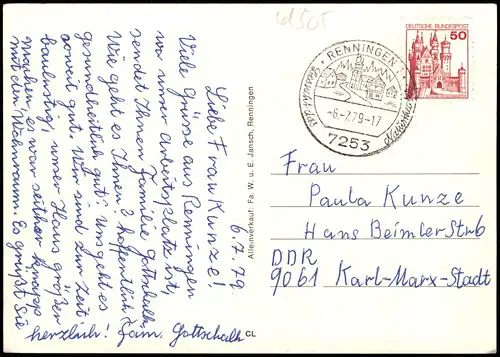 6.7.79
Liebe Frau Kunze!
Viele Grüsse aus Renningen
wo unser Arbeitsplatz ist,
sendet Ihnen Familie Gottschalk.
Wie geht es Ihnen? hoffentlich
gesundheitlich gut. Uns geht es
soweit gut. Wir sind zur Zeit
baulustig, unser Haus größer
machen, es war seither knapp
mit dem Wohnraum. Es grüßt Sie
herzlich! Fam. Gottschalk
CL
Alleinverkauf: Fa. W. u. E. Jansch, Renningen
RENNINGEN
-6.-7.79-17
7253
DEUTSCHE BUNDESPOST
50
Frau
Paula Kunze
Hans Beimler Str 6
DDR
9061 Karl-Marx-Stadt